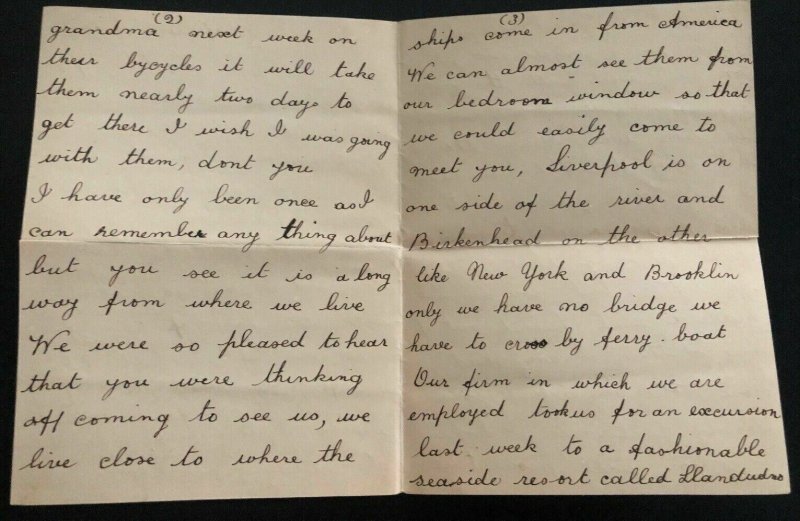 (2)
grandma next week on
their bycycles it will take
them nearly two days to
get there I wish I was going
with them, dont you
I have only been once as I
can remember any thing about
but you see it is a long
way from where we live
We were so pleased to hear
that you were thinking
off coming to see us, we
live close to where the
(3)
ships come in from America
We can almost see them from
our bedroom window so that
we could easily come to
meet you, Liverpool is on
one side of the river and
Birkenhead on the other
like New York and Brooklin
only we have no bridge we
have to cross by ferry-boat
Our firm in which we are
employed took us for an excursion
last week to a fashionable
seaside resort called Llandudno